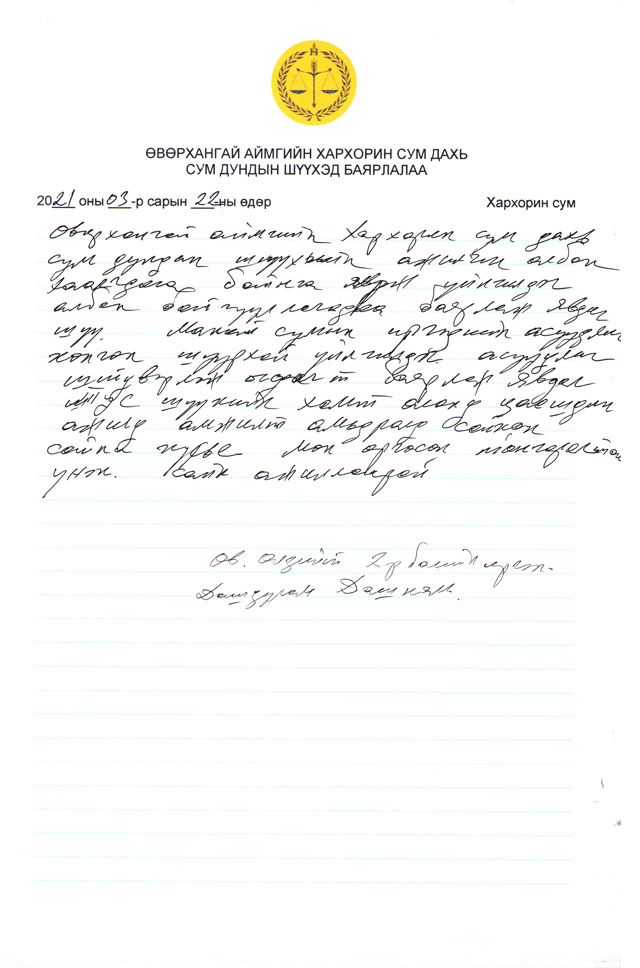 ӨВӨРХАНГАЙ АЙМГИЙН ХАРХОРИН СУМ ДАХЬ
СУМ ДУНДЫН ШҮҮХЭД БАЯРЛАЛАА
2021 оны 03-р сарын 22-ны өдөр Хархорин сум
Өвөрхангай аймгийн Хархорин сум дахь
сум дундын шүүхийн ажилчин албан
байнга үйлчилдэг
албан байгууллагадаа баярлаж явдаг
шүү. Манай сумын иргэдийн асуудлыг
хөнгөн шуурхай үйлчилдэг асуудлыг
шийдвэрлэж өгдөгт баярлаж явдаг
ТУС шүүхийн хамт олонд цаашдын
ажилд амжилт амьдралд сайхан
сайныг хүсье. Мөн
унж. Сайн ажиллаарай
Өв. Өлзийт 2-р багийн иргэн.
Дашдулам Дашням.